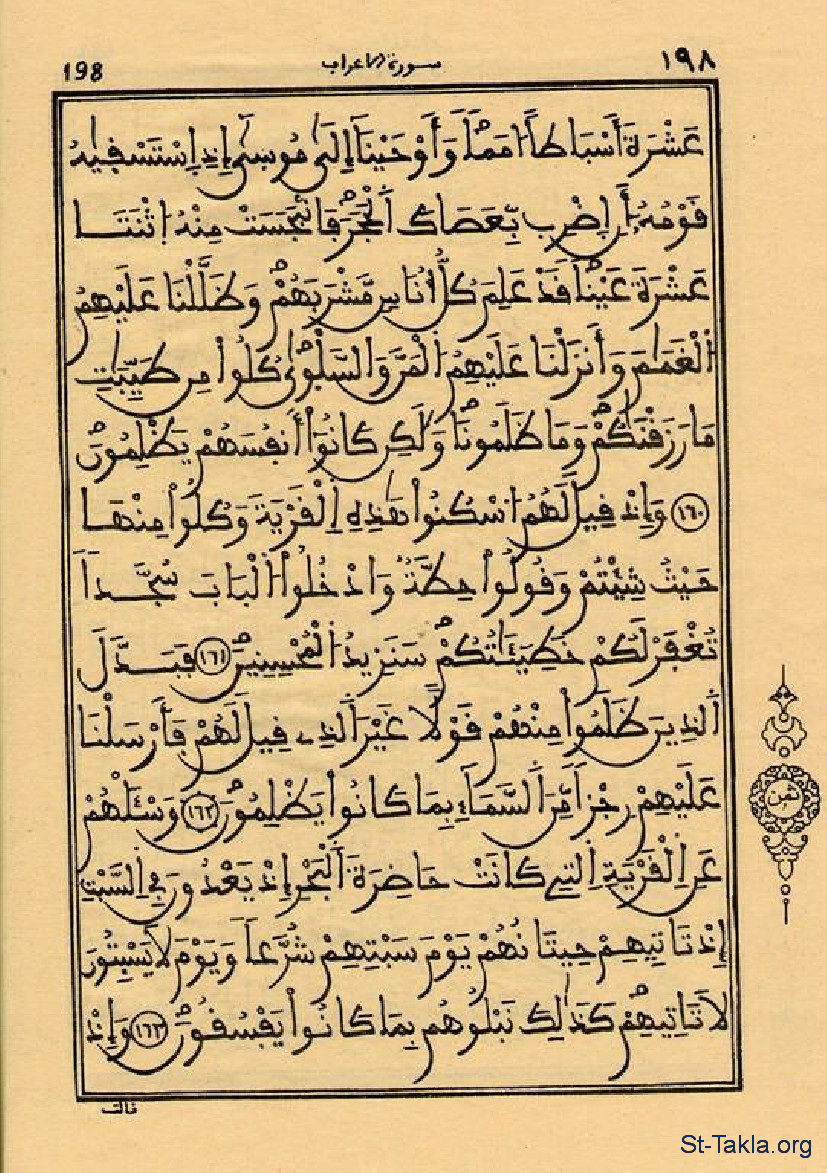 198 سورة الأعراف ١٩٨
عَشْرَةَ أَسْبَاطاً اُمَماً وَأَوْحَيْنَآ إِلَىٰ مُوسَىٰٓ إِذِ اِسْتَسْقِيٰهُ
قَوْمُهُۥٓ أَنِ اِضْرِب بِّعَصَاكَ اَلْحَجَرَ فَانۢبَجَسَتْ مِنْهُ اُثْنَتَا
عَشْرَةَ عَيْناً قَدْ عَلِمَ كُلُّ أُنَاسٍ مَّشْرَبَهُمْ وَظَلَّلْنَا عَلَيْهِمُ
اُلْغَمَٰمَ وَأَنزَلْنَا عَلَيْهِمُ اُلْمَنَّ وَالسَّلْوٰىٰ كُلُوا۟ مِن طَيِّبَٰتِ
مَا رَزَقْنَٰكُمْ وَمَا ظَلَمُونَا وَلَٰكِن كَانُوٓا۟ أَنفُسَهُمْ يَظْلِمُونَ
١٦٠ وَإِذْ قِيلَ لَهُمُ اُسْكُنُوا۟ هَٰذِهِ اِلْقَرْيَةَ وَكُلُوا۟ مِنْهَا
حَيْثُ شِئْتُمْ وَقُولُوا۟ حِطَّةٌ وَادْخُلُوا۟ اُلْبَابَ سُجَّداً
تُغْفَرْ لَكُمْ خَطِيٓـَٰٔتُكُمْ سَنَزِيدُ اُلْمُحْسِنِينَ ١٦١ فَبَدَّلَ
اَلذِينَ ظَلَمُوا۟ مِنْهُمْ قَوْلًا غَيْرَ اَلذِے قِيلَ لَهُمْ فَأَرْسَلْنَا
عَلَيْهِمْ رِجْزاً مِّنَ اَلسَّمَآءِ بِمَا كَانُوا۟ يَظْلِمُونَ ١٦٢ وَسْـَٔلْهُمْ
عَنِ اِلْقَرْيَةِ اِلتِے كَانَتْ حَاضِرَةَ اَلْبَحْرِ إِذْ يَعْدُونَ فِے اِلسَّبْتِ
إِذْ تَاتِيهِمْ حِيتَانُهُمْ يَوْمَ سَبْتِهِمْ شُرَّعاً وَيَوْمَ لَا يَسْبِتُونَ
لَا تَاتِيهِمْ كَذَٰلِكَ نَبْلُوهُم بِمَا كَانُوا۟ يَفْسُقُونَ ١٦٣ وَإِذْ
قالت
ثمن
St-Takla.org